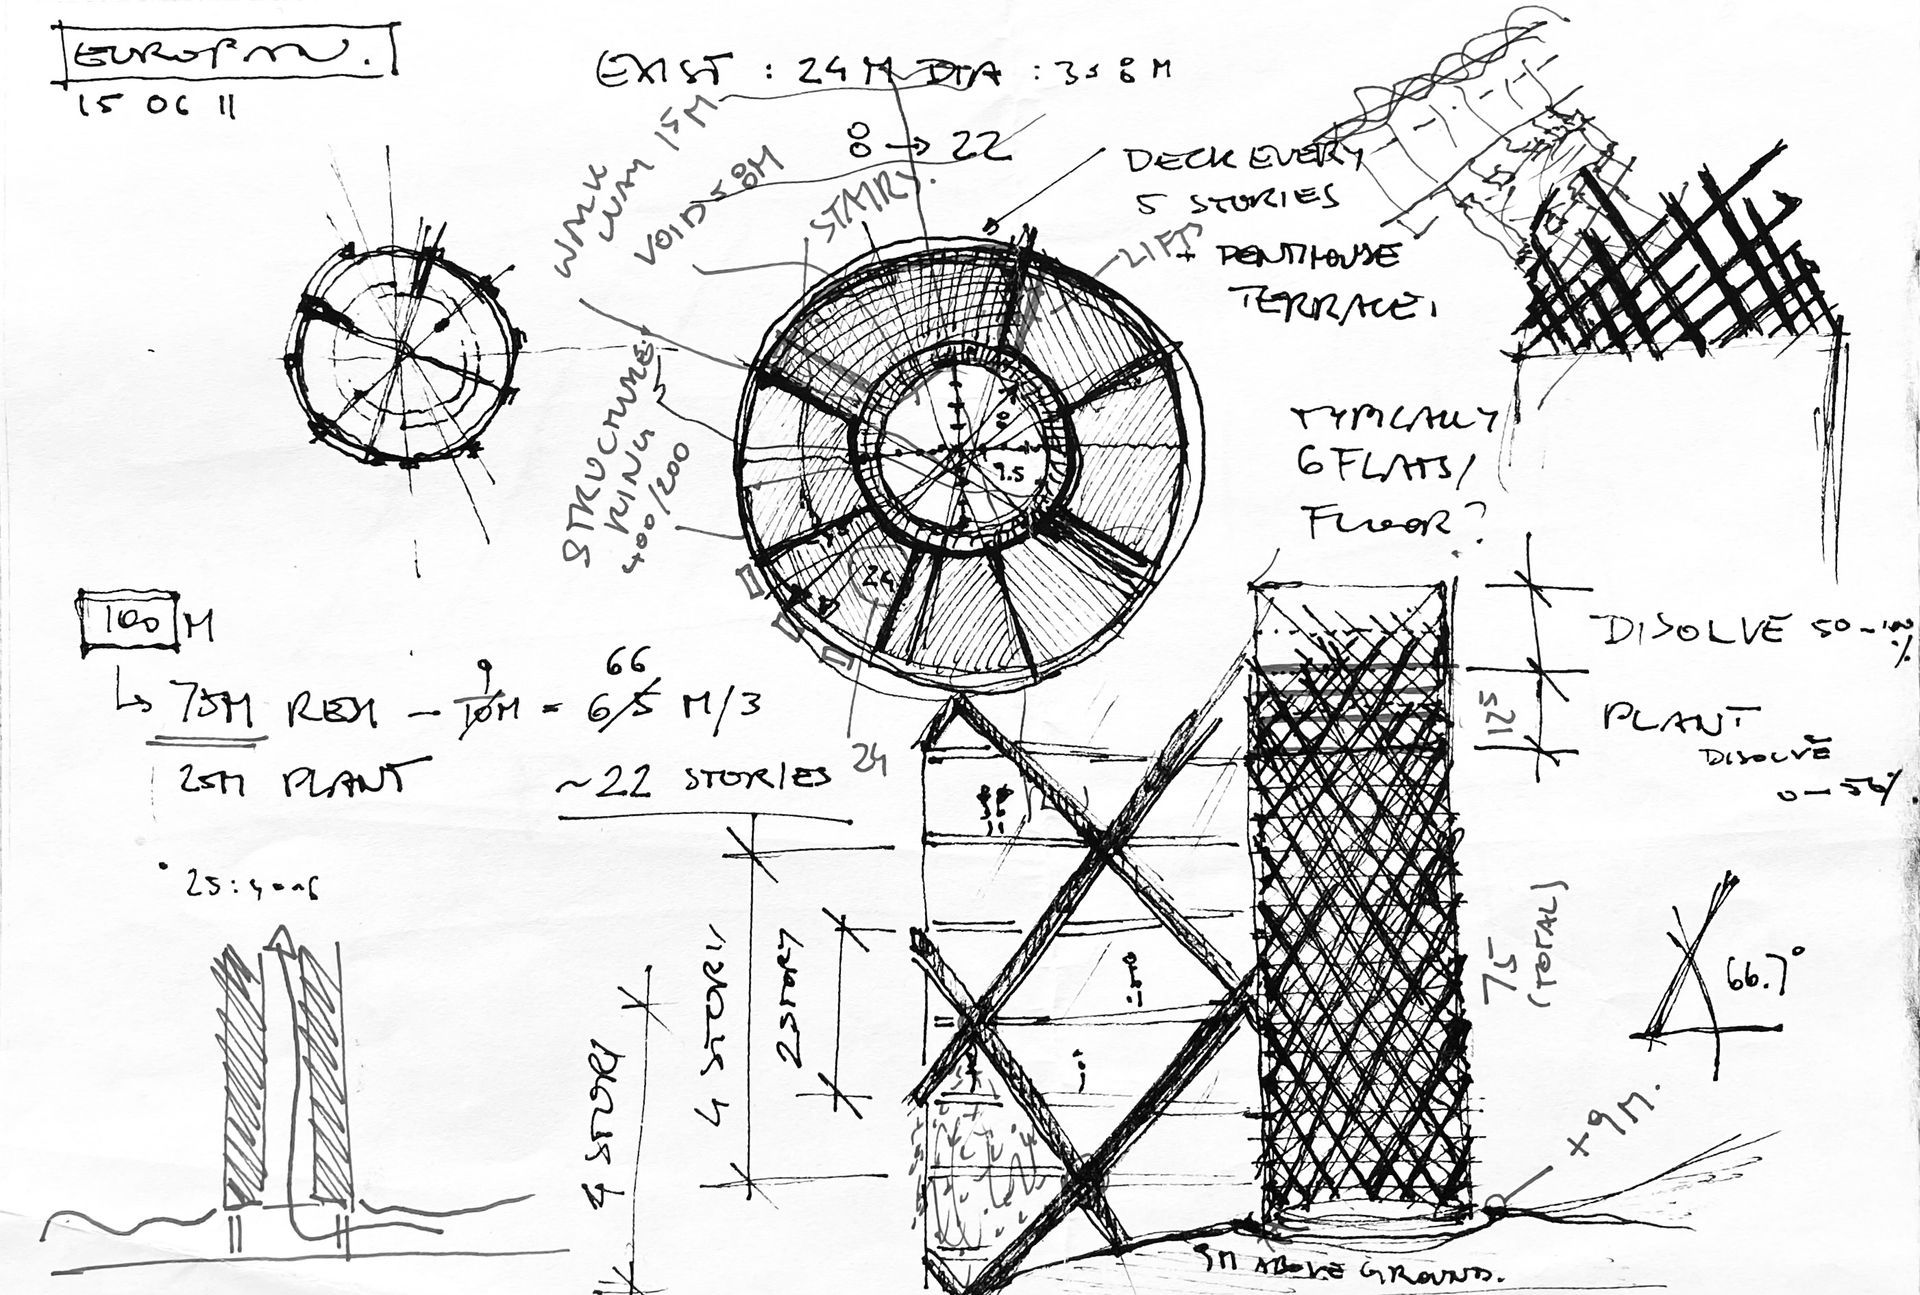 EUROPAN.
15 06 11
EXIST : 24M DIA : 358M
8 → 22
WALK WAY 15M
VOID 58M
STAIR
LIFT
DECK EVERY
5 STORIES
+ PENTHOUSE
TERRACE
STRUCTURE
RING
400/200
9.5
24
24
TYPICALLY
6 FLATS/
FLOOR?
100 M
75M RESI - 10M = 65 M/3
9
66
25M PLANT
~22 STORIES
4 STORY
4 STORY
2 STORY
DISOLVE 50-100
%
125
PLANT
DISOLVE
0-50%
75
(TOTAL)
66.7°
+9M.
9M ABOVE GROUND.